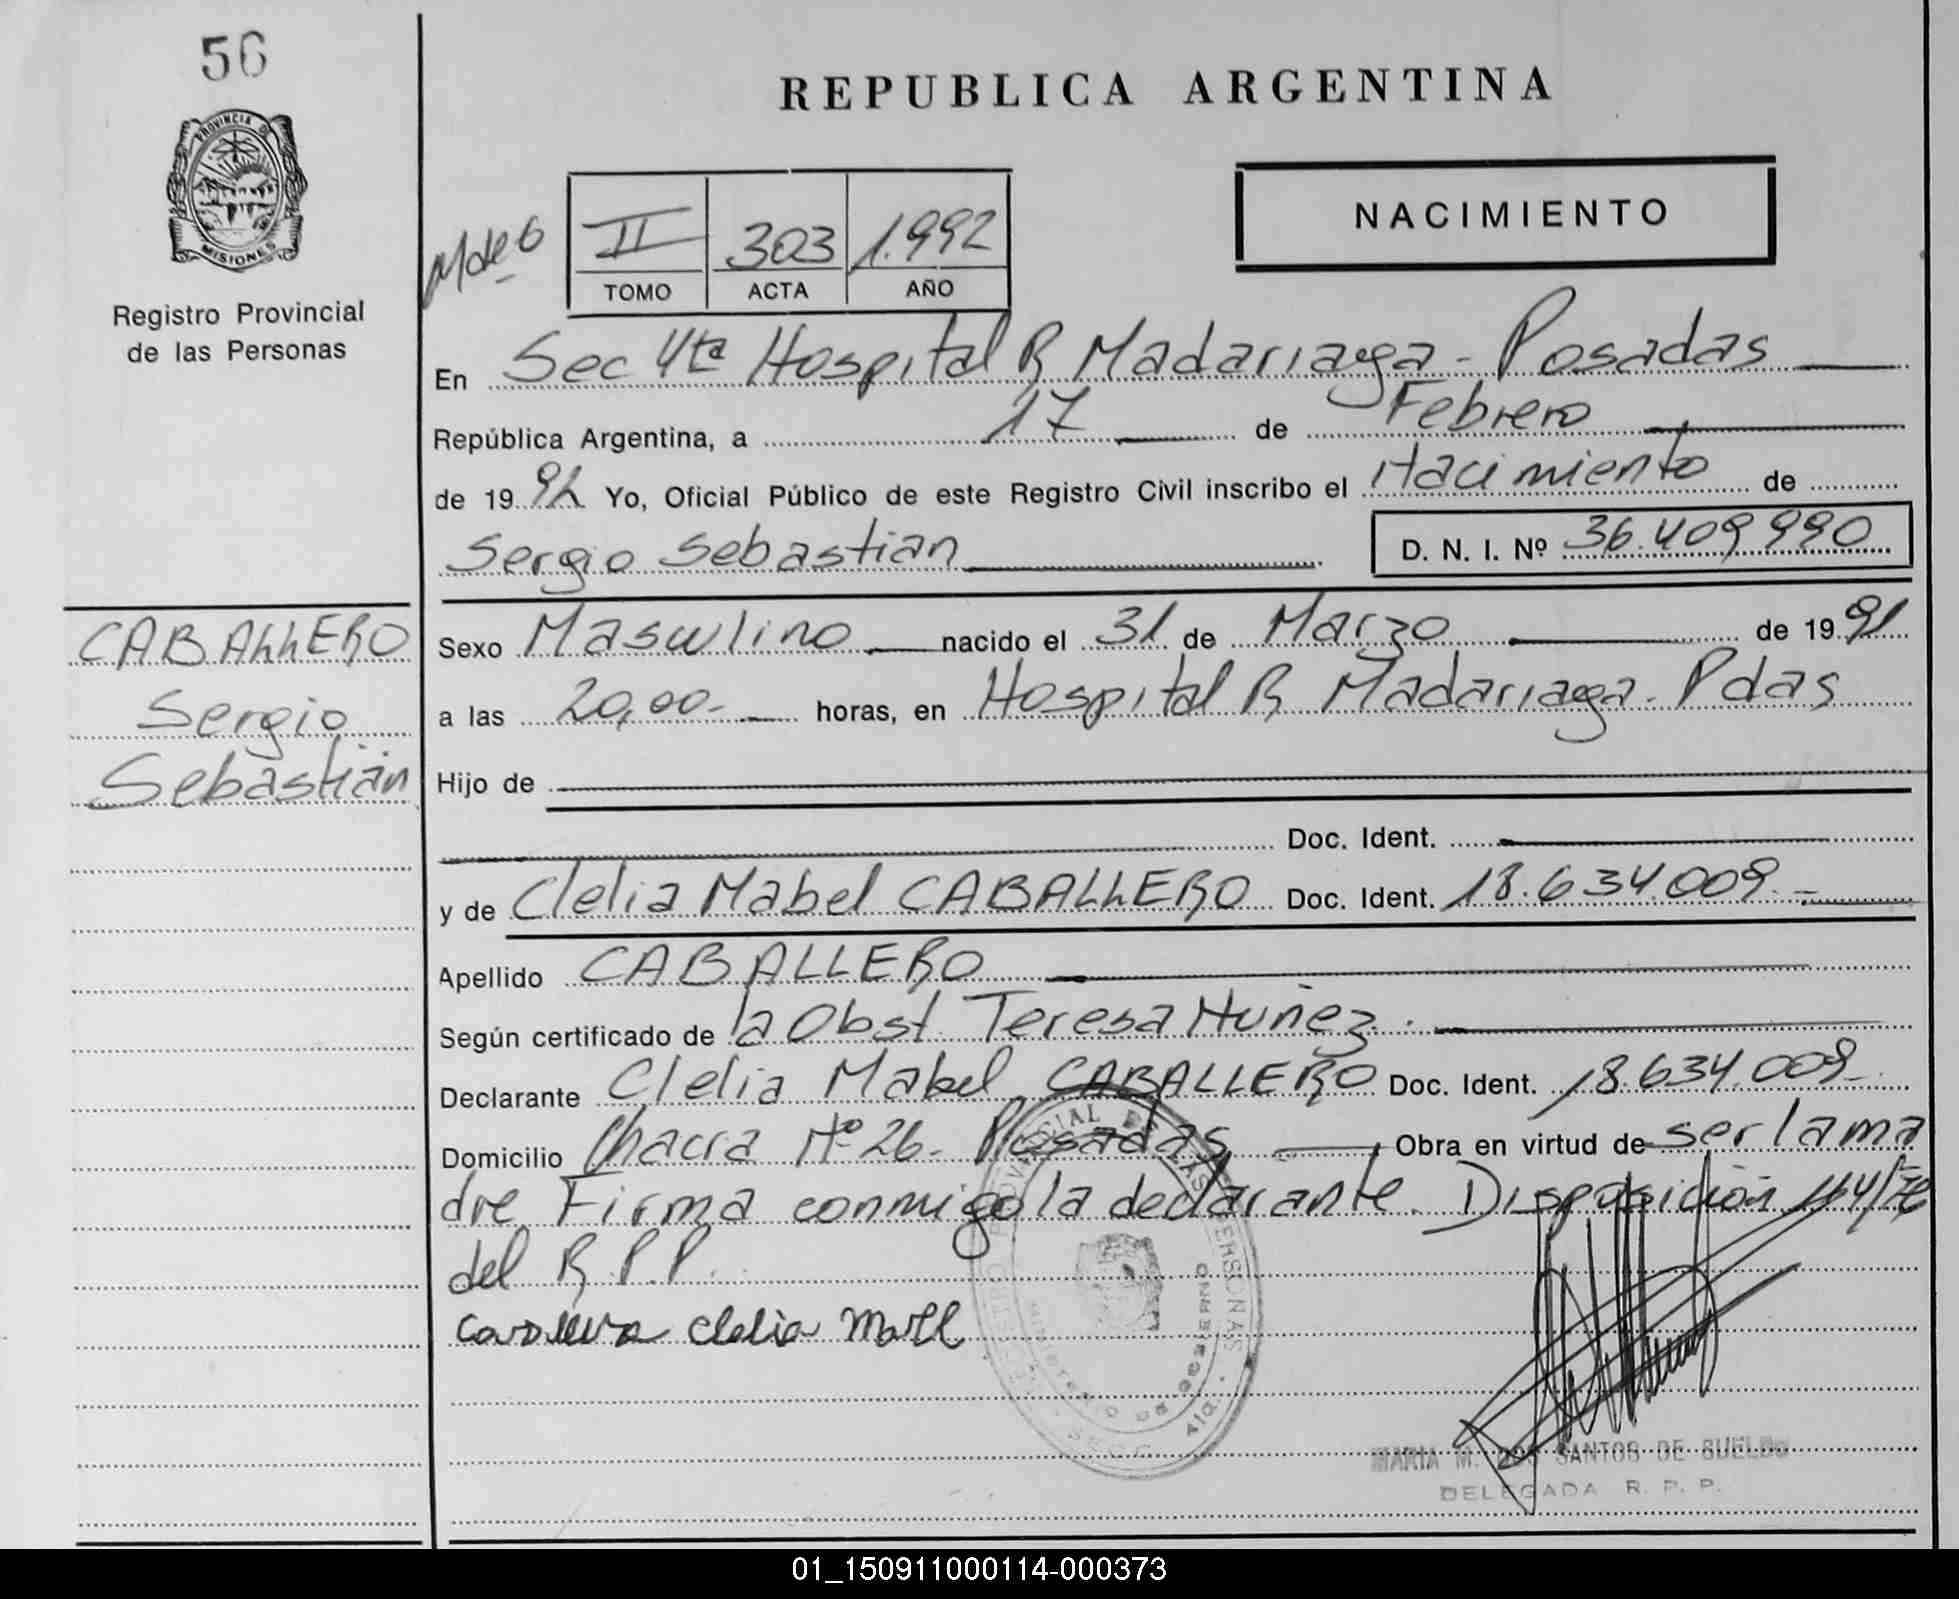 56
PROVINCIA DE
MISIONES
Registro Provincial
de las Personas
REPUBLICA ARGENTINA
NACIMIENTO
II 303 1.992
TOMO ACTA AÑO
En Sec 4ta Hospital R Madariaga - Posadas
República Argentina, a 17 de Febrero
de 1992 Yo, Oficial Público de este Registro Civil inscribo el Nacimiento de
Sergio Sebastian D. N. I. Nº 36.409990
CABALLERO
Sergio
Sebastián
Sexo Masculino nacido el 31 de Marzo de 1991
a las 20,00- horas, en Hospital R Madariaga. Pdas
Hijo de
Doc. Ident.
y de Clelia Mabel CABALLERO Doc. Ident. 18.634.009.-
Apellido CABALLERO
Según certificado de la Obst. Teresa Nuñez.
Declarante Clelia Mabel CABALLERO Doc. Ident. 18.634.009-
Domicilio Chacra Nº 26- Posadas Obra en virtud de ser la ma
dre Firma conmigo la declarante. Disposición 164/
del R.P.P.
Clelia
MARIA M. DOS SANTOS DE SUELDO
DELEGADA R. P. P.
01_150911000114-000373